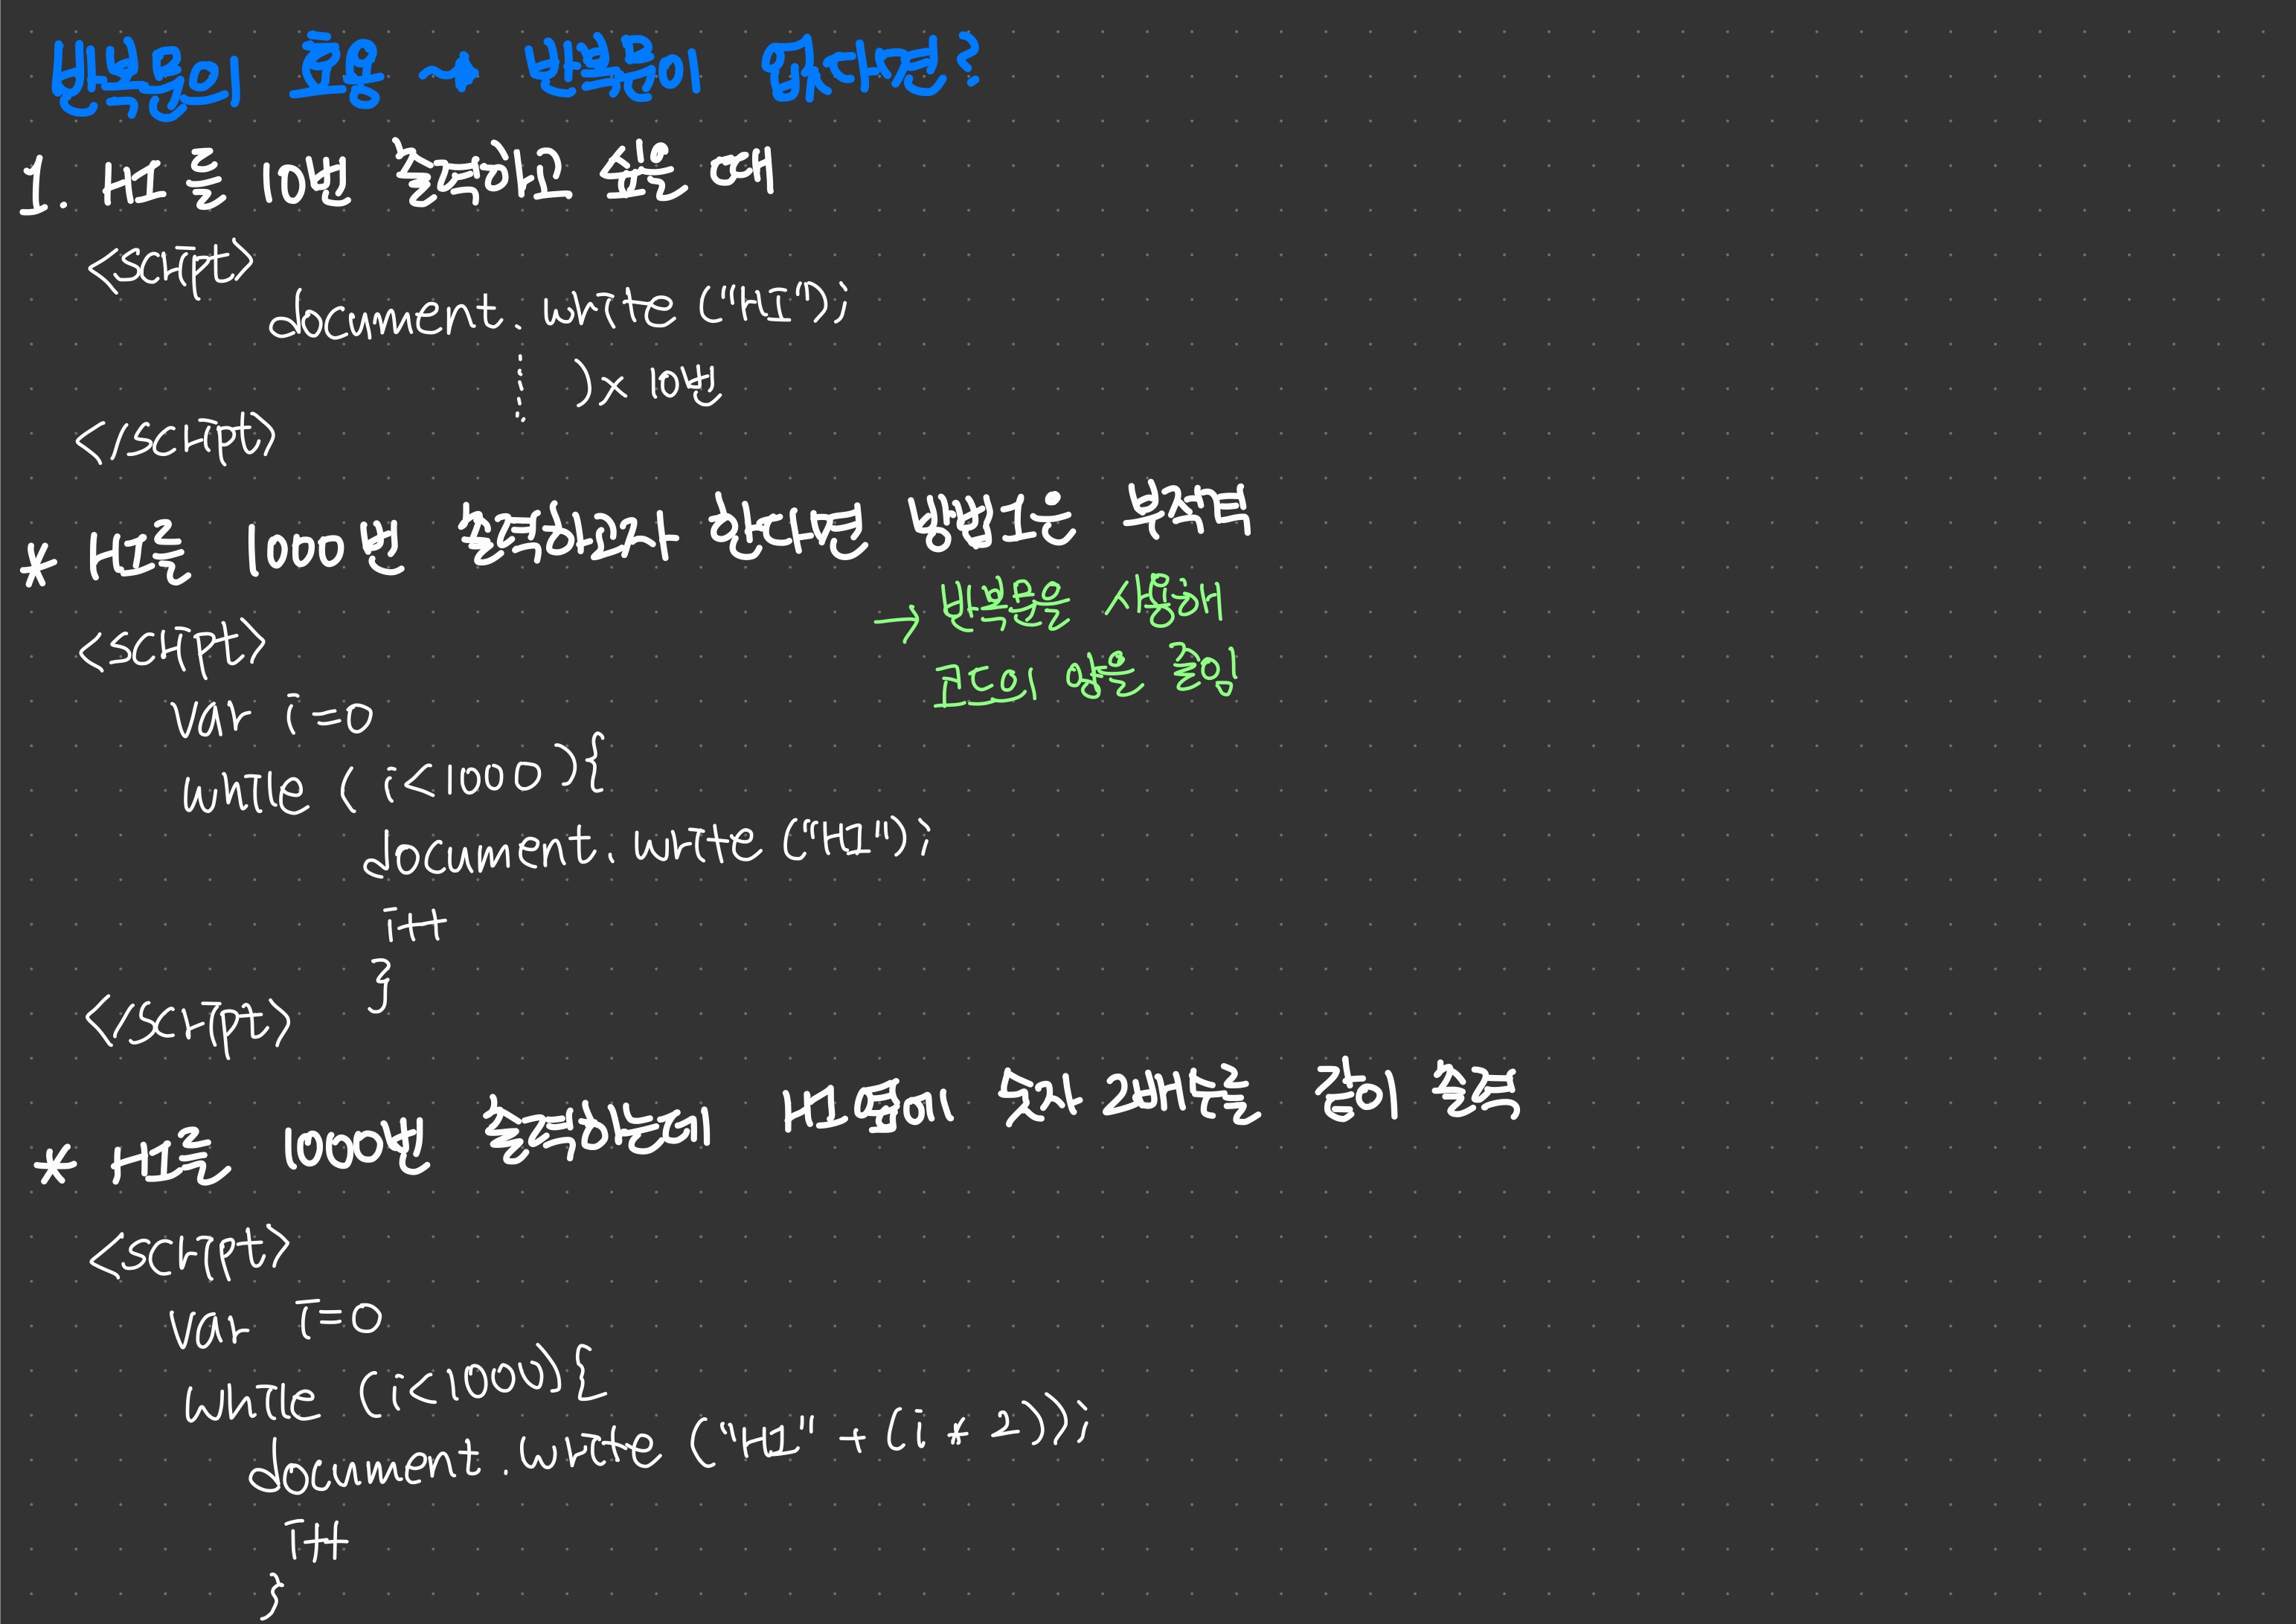 반복문의 효용 → 반복문이 없다면?
1. HI를 10번 출력하고 싶을 때
<script>
document.write("HI");
⋮ ) x 10번
</script>
* HI를 1000번 출력하고자 한다면 방법1은 부적덕
→ 반복문을 사용해
코드의 양은 줄임
<script>
var i=0
while (i<1000){
document.write("HI");
i++
}
</script>
* HI를 1000번 출력하는데 HI 옆에 숫자 2배수를 같이 출력
<script>
var i=0
while (i<1000){
document.write("HI" + (i * 2));
i++
}